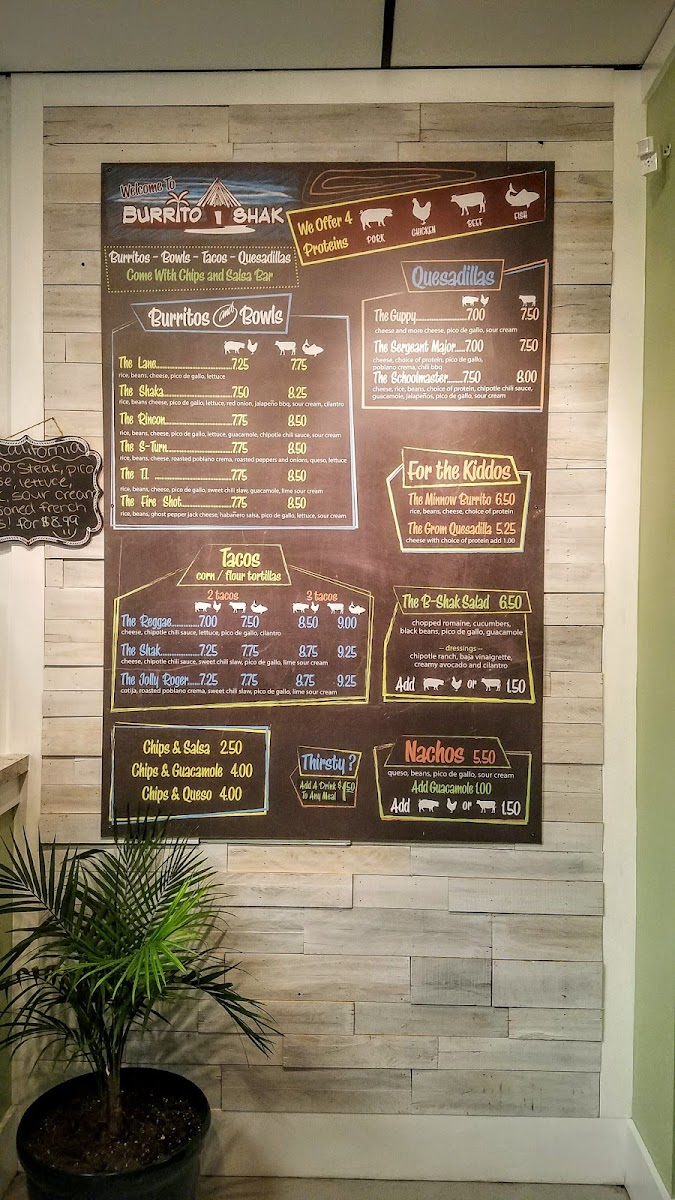 Welcome To
BURRITO SHAK
We Offer 4
Proteins
PORK
CHICKEN
BEEF
FISH
Burritos - Bowls - Tacos - Quesadillas
Come With Chips and Salsa Bar
Burritos and Bowls
The Lane 7.25 7.75
rice, beans, cheese, pico de gallo, lettuce
The Shaka 7.50 8.25
rice, beans, cheese, pico de gallo, lettuce, red onion, jalapeño bbq, sour cream, cilantro
The Rincon 7.75 8.50
rice, beans, cheese, pico de gallo, lettuce, guacamole, chipotle chili sauce, sour cream
The S-Turn 7.75 8.50
rice, beans, cheese, roasted poblano crema, roasted peppers and onions, queso, lettuce
The T.I. 7.75 8.50
rice, beans, cheese, pico de gallo, sweet chili slaw, guacamole, lime sour cream
The Fire Shot 7.75 8.50
rice, beans, ghost pepper jack cheese, habañero salsa, pico de gallo, lettuce, sour cream
Quesadillas
The Guppy 7.00 7.50
cheese and more cheese, pico de gallo, sour cream
The Sergeant Major 7.00 7.50
cheese, choice of protein, pico de gallo,
poblano crema, chili bbq
The Schoolmaster 7.50 8.00
cheese, rice, beans, choice of protein, chipotle chili sauce,
guacamole, jalapeños, pico de gallo, sour cream
For the Kiddos
The Minnow Burrito 6.50
rice, beans, cheese, choice of protein
The Grom Quesadilla 5.25
cheese with choice of protein add 1.00
Tacos
corn / flour tortillas
2 tacos 3 tacos
The Reggae 7.00 7.50 8.50 9.00
cheese, chipotle chili sauce, lettuce, pico de gallo, cilantro
The Shak 7.25 7.75 8.75 9.25
cheese, chipotle chili sauce, sweet chili slaw, pico de gallo, lime sour cream
The Jolly Roger 7.25 7.75 8.75 9.25
cotija, roasted poblano crema, sweet chili slaw, pico de gallo, lime sour cream
The B-Shak Salad 6.50
chopped romaine, cucumbers,
black beans, pico de gallo, guacamole
– dressings –
chipotle ranch, baja vinaigrette,
creamy avocado and cilantro
Add or 1.50
Chips & Salsa 2.50
Chips & Guacamole 4.00
Chips & Queso 4.00
Thirsty ?
Add A Drink $1.50
To Any Meal
Nachos 5.50
queso, beans, pico de gallo, sour cream
Add Guacamole 1.00
Add or 1.50
steak, pico
lettuce,
sour cream
french
for $8.99